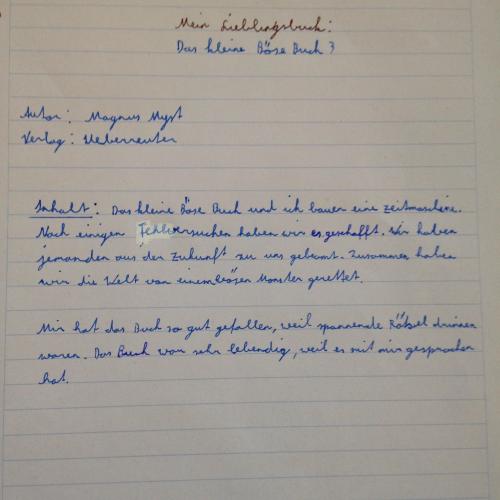 Mein Lieblingsbuch:
Das kleine Böse Buch 3
Autor: Magnus Myst
Verlag: Ueberreuter
Inhalt: Das kleine Böse Buch und ich bauen eine zeitmaschine.
Nach einigen Fehlversuchen haben wir es geschafft. Wir haben
jemanden aus der Zukunft zu uns gebeamt. Zusammen haben
wir die Welt von einem bösen Monster gerettet.
Mir hat das Buch so gut gefallen, weil spannende Rätsel drinnen
waren. Das Buch war sehr lebendig, weil es mit mir gesprochen
hat.